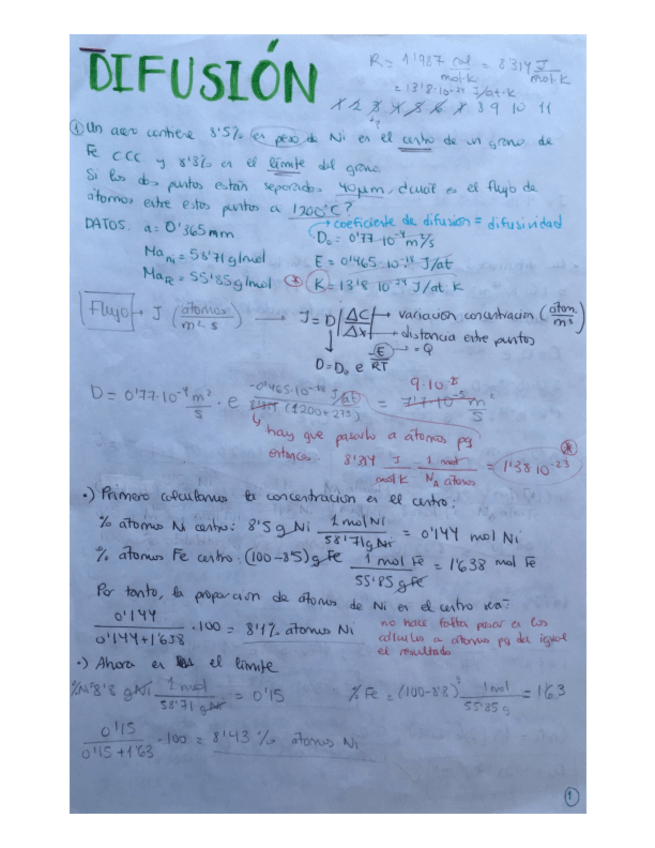 DIFUSIÓN
R = 1'987 cal/mol·K = 8'314 J/mol·K
= 13'8·10⁻²⁴ J/at·K
1 2 3 4 5 6 7 8 9 10 11
① Un acero contiene 8'5% en peso de Ni en el centro de un grano de
Fe CCC y 8'8% en el límite del grano.
Si los dos puntos están separados 40μm, ¿cuál es el flujo de
átomos entre estos puntos a 1200°C?
→ coeficiente de difusión = difusividad
DATOS: a = 0'365mm
D₀ = 0'77·10⁻⁴ m²/s
Ma Ni = 58'71 g/mol
E = 0'465·10⁻¹⁸ J/at
Ma Fe = 55'85 g/mol
K = 13'8 10⁻²⁴ J/at K
Flujo → J (átomos/m²·s) → J = D |ΔC/Δx| → variación concentración (átom/m³)
→ distancia entre puntos
D = D₀ e E/RT → = Q
D = 0'77·10⁻⁴ m²/s · e -0'465·10⁻¹⁸ J/at / 8'314 (1200+273) = 7'7·10⁻⁵ m²/s
hay que pasarlo a átomos pq
entonces: 8'314 J/mol K · 1 mol/N_A átomos = 1'38 10⁻²³
·) Primero calculamos la concentración en el centro:
% átomos Ni centro: 8'5 g Ni 1 mol Ni/58'71 g Ni = 0'144 mol Ni
% átomos Fe centro: (100-8'5) g Fe 1 mol Fe/55'85 g Fe = 1'638 mol Fe
Por tanto, la proporción de átomos de Ni en el centro será:
0'144/0'144+1'638 ·100 = 8'1% átomos Ni
no hace falta pasar en los
cálculos a átomos pq da igual
el resultado
·) Ahora en el límite
%Ni = 8'8 g Ni 1 mol/58'71 g Ni = 0'15
% Fe = (100-8'8) 1 mol/55'85 g = 1'63
0'15/0'15+1'63 ·100 = 8'43 % átomos Ni
1